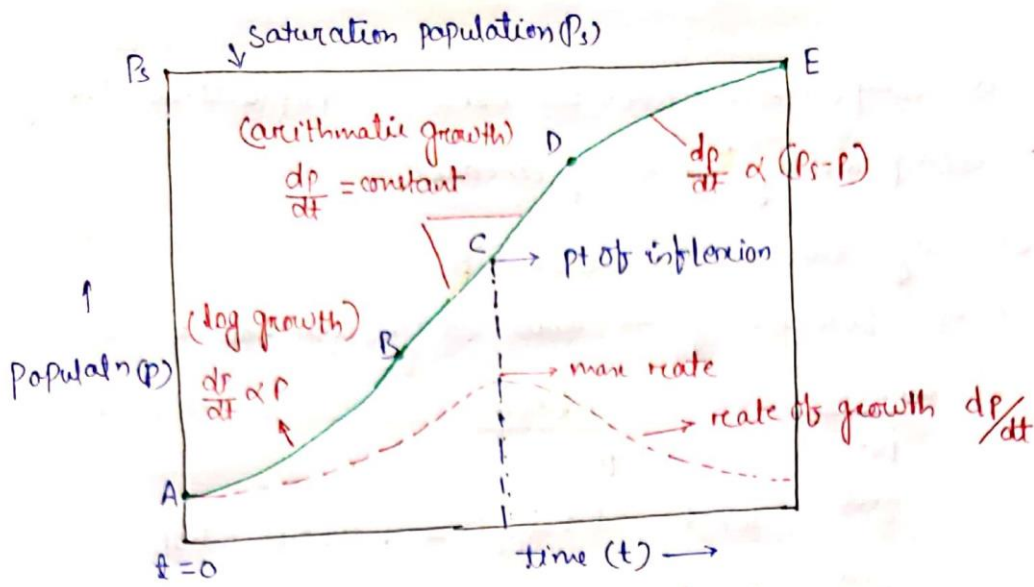 saturation population (Ps)
Ps
E
(arithmatic growth)
dp/dt = constant
D
dp/dt ∝ (Ps-P)
C
pt of inflexion
(log growth)
dp/dt ∝ P
B
populatn (p)
max reate
reate of growth dp/dt
A
t = 0
time (t)